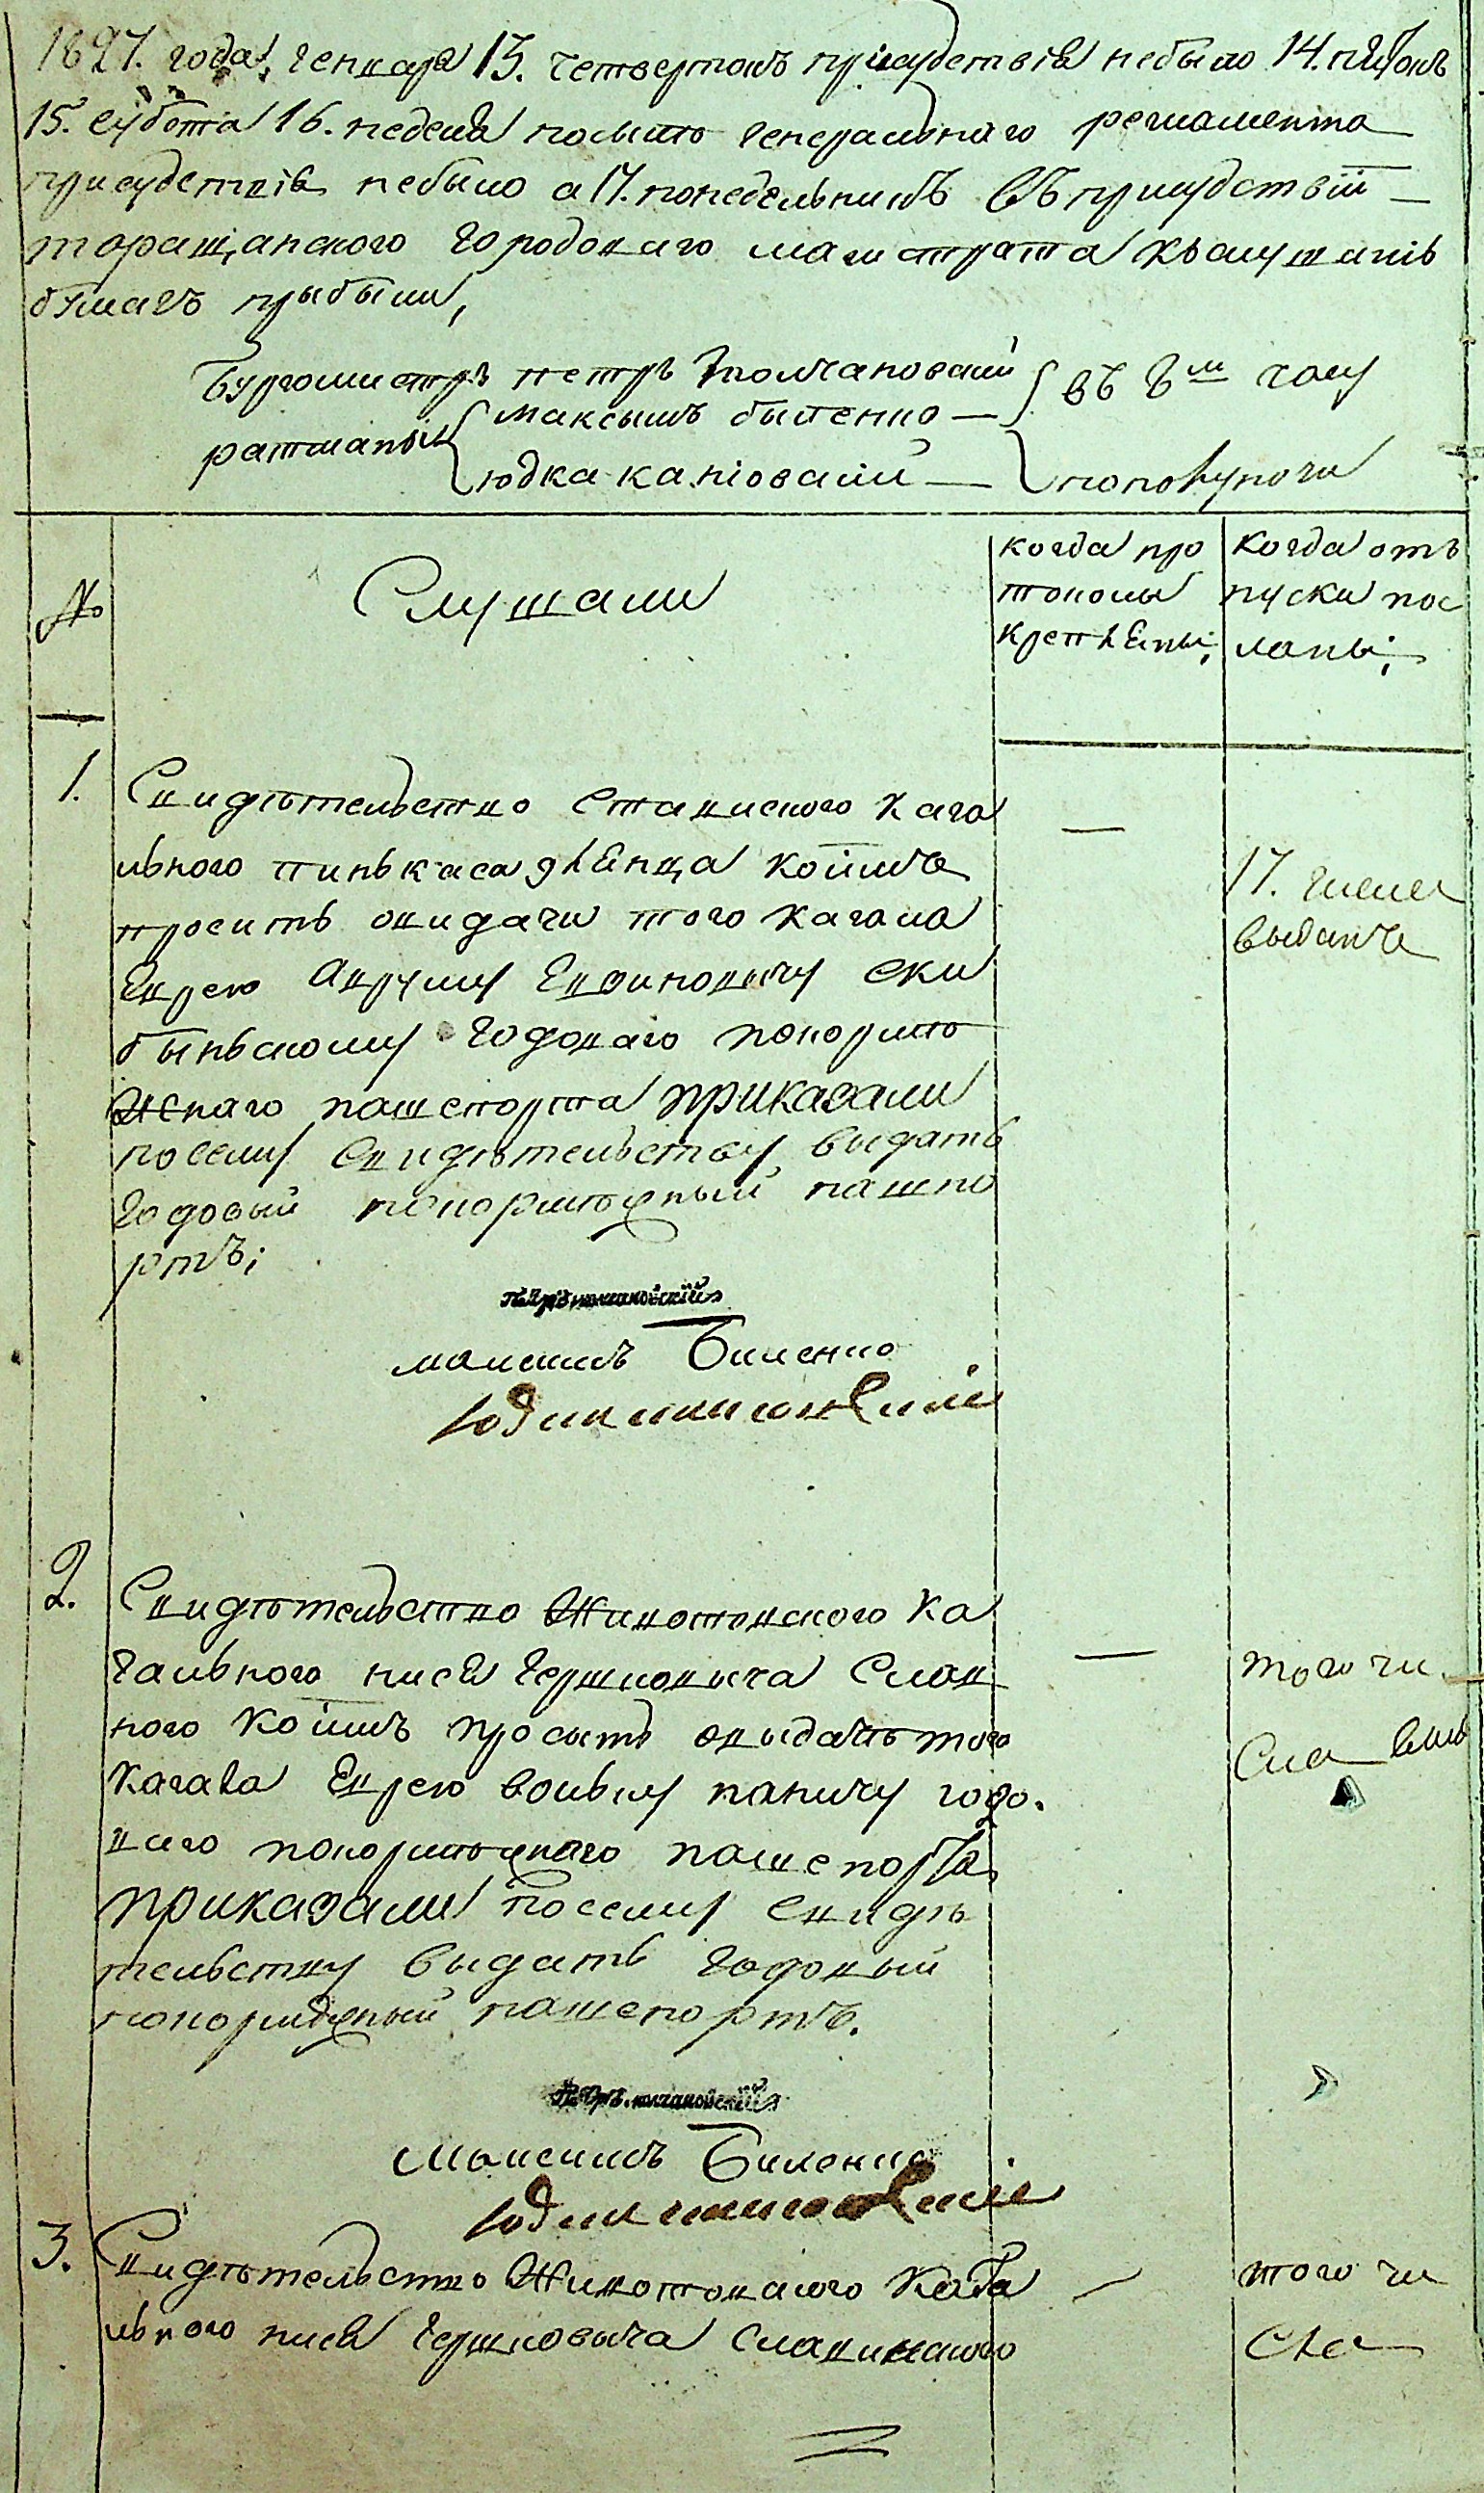 1827. года генваря 13. четвертокъ присудствія небыло 14. пятокъ
15. субота 16. неделя посылѣ генеральнаго регламента
присудствія небыло а 17. понедельникъ Въ присудствіи
таращанского городоваго магистрата к слушанію
бумагъ прыбыли,
Бургомистръ петръ Толчановскій въ 8м часу
ратманы Максымъ биленко
юдка каніовскій пополуночи
№
Слушали
когда про
токолы
крепленны;
Когда отъ
пуски пос
ланы;
1.
Свидѣтельство Ставиского кага
льного пинькаса эленца коимъ
проситъ овидачи того кагала
Еврею Авруму Евиновичу ски
быньскому годоваго покормѣ
жнаго пашепорта приказали
посему свидѣтельству выдать
годовый покормѣжный пашпо
ртъ;
17. числа
выдано
Петръ толчановскій
максимъ Биленко
Юдка каніовскій
2.
Свидѣтельство Животовского ка
гального нисея гершковыча Слав
ного коимъ просытъ овыдачѣ того
кагала Еврею вольку паничу годо
ваго покормѣжнаго пашепорта
приказали посему свидѣ
тельству выдать годовый
покормѣжный пашепортъ.
того чи
сла
Петръ толчановскій
Максимъ Биленко
Юдка каніовскій
3.
Свидѣтельство Животовского кага
льного нисея гершковыча
того чи
сла